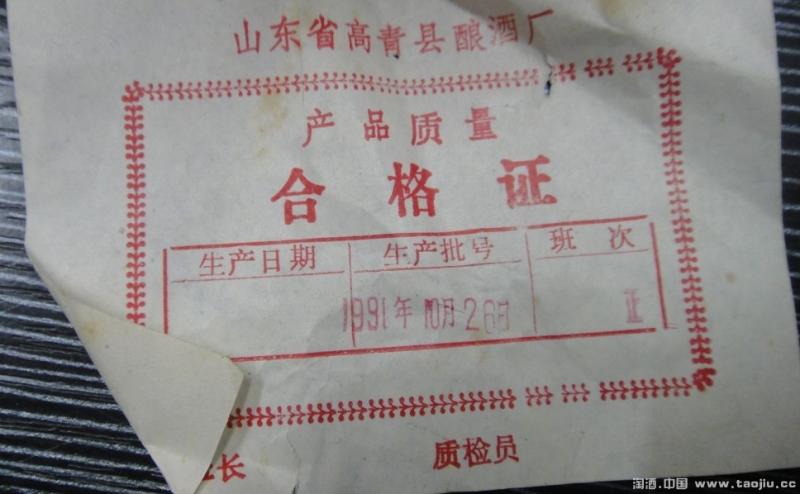 山东省高青县酿酒厂
产品质量
合格证
生产日期 生产批号 班次
1991年10月26日 正
长 质检员
淘酒.中国 www.taojiu.cc